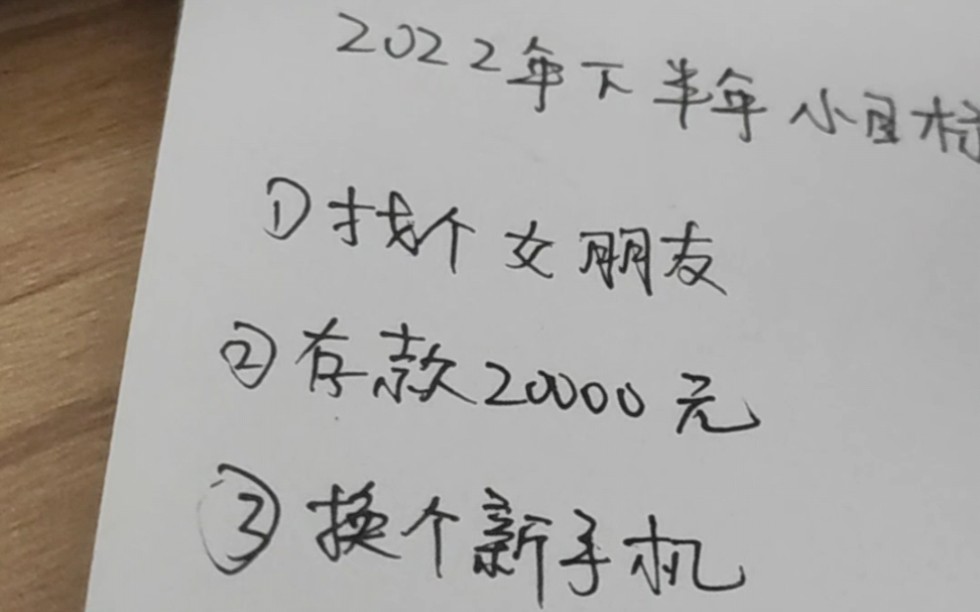 2022年下半年小目标
①找个女朋友
②存款20000元
③换个新手机